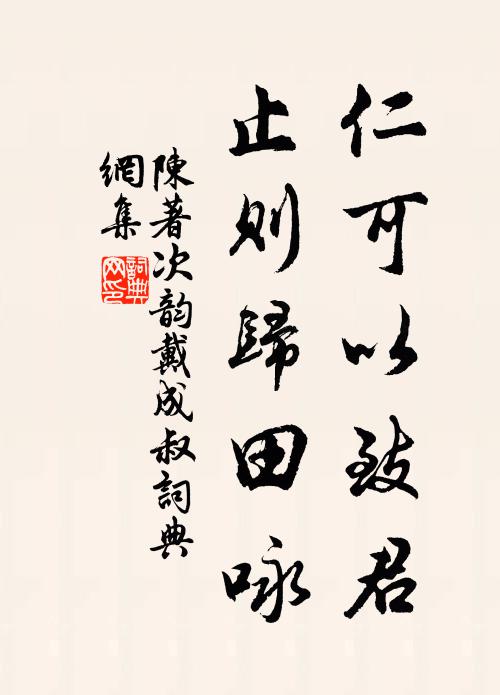 仁可以致君
止則歸田咏
陳著次韵戴成叔詞典
網集
詞典網印